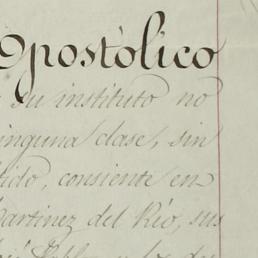 Apostólico
su instituto no
ninguna clase, sin
tido, consiente en
Martinez del Río, sus